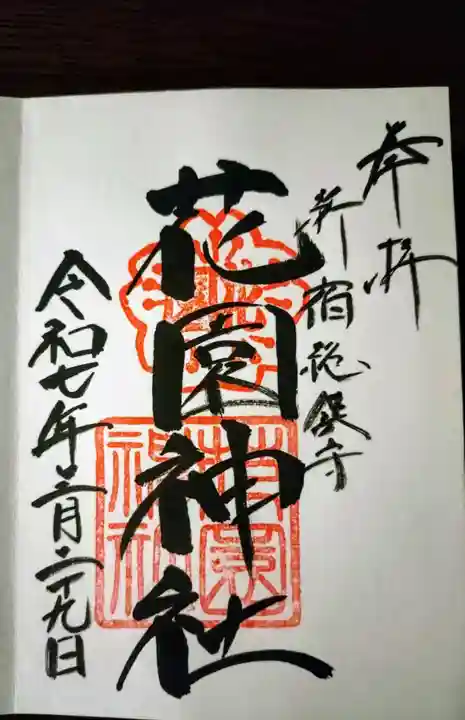 奉拝
新宿総鎮守
花園神社
令和七年三月二十九日
花園
神社